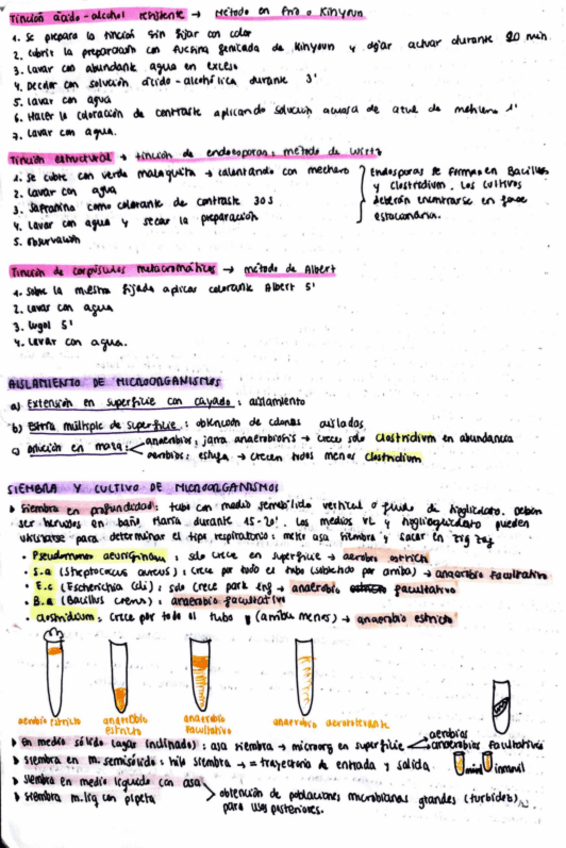 Tinción ácido-alcohol resistente → Método en frío o Kinyoun
1. Se prepara la tinción sin fijar con calor
2. Cubrir la preparación con fucsina fenicada de Kinyoun y dejar actuar durante 20 min
3. Lavar con abundante agua en exceso
4. Decolor con solución ácido-alcohólica durante 3'
5. Lavar con agua
6. Hacer la coloración de contraste aplicando solución acuosa de azul de metileno 1'
7. Lavar con agua.
Tinción estructural → tinción de endosporas: método de Wirtz
1. Se cubre con verde malaquita → calentando con mechero
2. Lavar con agua
3. Safranina como colorante de contraste 30s
4. Lavar con agua y secar la preparación
5. Observación
Endosporas se forman en Bacillus
y Clostridium. Los cultivos
deberán encontrarse en fase
estacionaria.
Tinción de corpúsculos metacromáticos → método de Albert
1. Sobre la muestra fijada aplicar colorante Albert 5'
2. Lavar con agua
3. Lugol 5'
4. Lavar con agua.
AISLAMIENTO DE MICROORGANISMOS
a) Extensión en superficie con cayado: aislamiento
b) Estría múltiple de superficie: obtención de colonias aisladas
c) Dilución en masa:
anaerobios: jarra anaerobiosis → crece solo Clostridium en abundancia
aerobios: estufa → crecen todos menos Clostridium
SIEMBRA Y CULTIVO DE MICROORGANISMOS
Siembra en profundidad: tubo con medio semisólido vertical o fluido de tioglicolato. Deben
ser hervidos en baño María durante 15-20'. Los medios VL y tioglicolato pueden
utilizarse para determinar el tipo respiratorio: meter asa siembra y sacar en zig zag
• Pseudomona aeuriginosa: solo crece en superficie → aerobio estricto
• S.a (Streptococcus aureus): crece por todo el tubo (sobretodo por arriba) → anaerobio facultativo
• E.c (Escherichia coli): solo crece parte → anaerobio facultativo
• B.a (Bacillus cereus): anaerobio facultativo
• Clostridium: crece por todo el tubo (arriba menos) → anaerobio estricto
aerobio estricto
anaerobio
estricto
anaerobio
facultativo
anaerobio aerotolerante
En medio sólido (agar inclinado): asa siembra → microorg en superficie
aerobios
anaerobios facultativos
Siembra en m. semisólido: hilo siembra → = trayectoria de entrada y salida
móvil
inmóvil
Siembra en medio líquido con asa
Siembra m.líq con pipeta
obtención de poblaciones microbianas grandes (turbidez)
para usos posteriores.